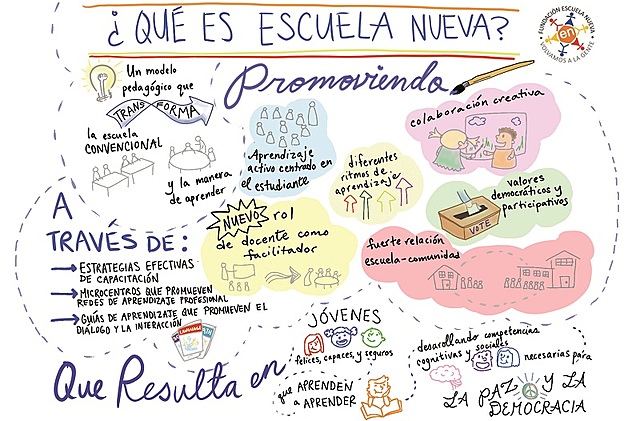 ¿QUÉ ES ESCUELA NUEVA?
FUNDACIÓN ESCUELA NUEVA
en
VOLVAMOS A LA GENTE
Un modelo
pedagógico que
TRANSFORMA
la escuela
CONVENCIONAL
y la manera
de aprender
Promoviendo
Aprendizaje
activo centrado en
el estudiante
diferentes
ritmos de
aprendizaje
colaboración creativa
valores
democráticos y
participativos
VOTE
NUEVO rol
de docente como
facilitador
fuerte relación
escuela-comunidad
A
TRAVÉS DE:
ESTRATEGIAS EFECTIVAS
DE CAPACITACIÓN
MICROCENTROS QUE PROMUEVEN
REDES DE APRENDIZAJE PROFESIONAL
GUÍAS DE APRENDIZATE QUE PROMUEVEN EL
DIÁLOGO Y LA INTERACCIÓN
LANGUAGE
Que Resulta en
JÓVENES
felices, capaces, y seguros
que APRENDEN
a APRENDER
desarollando competencias
cognitivas y sociales
necesarias para
LA PAZ Y LA
DEMOCRACIA